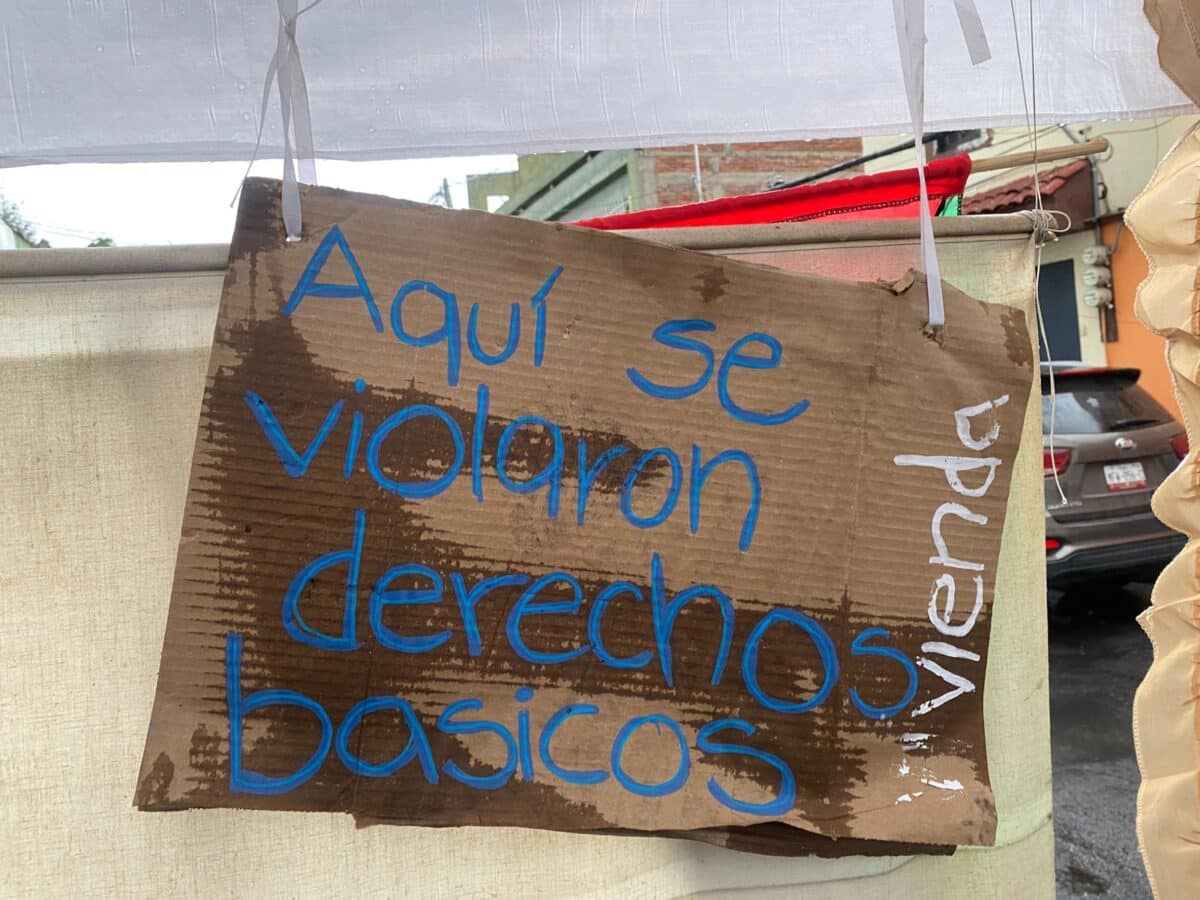 Aquí se
violaron
derechos
basicos
vivienda